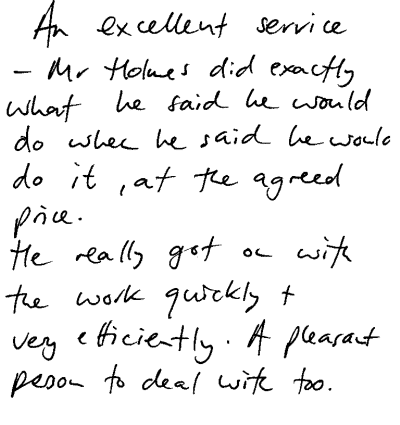 An excellent service
- Mr Holmes did exactly
what he said he would
do when he said he would
do it, at the agreed
price.
He really got on with
the work quickly +
very efficiently. A pleasant
person to deal with too.